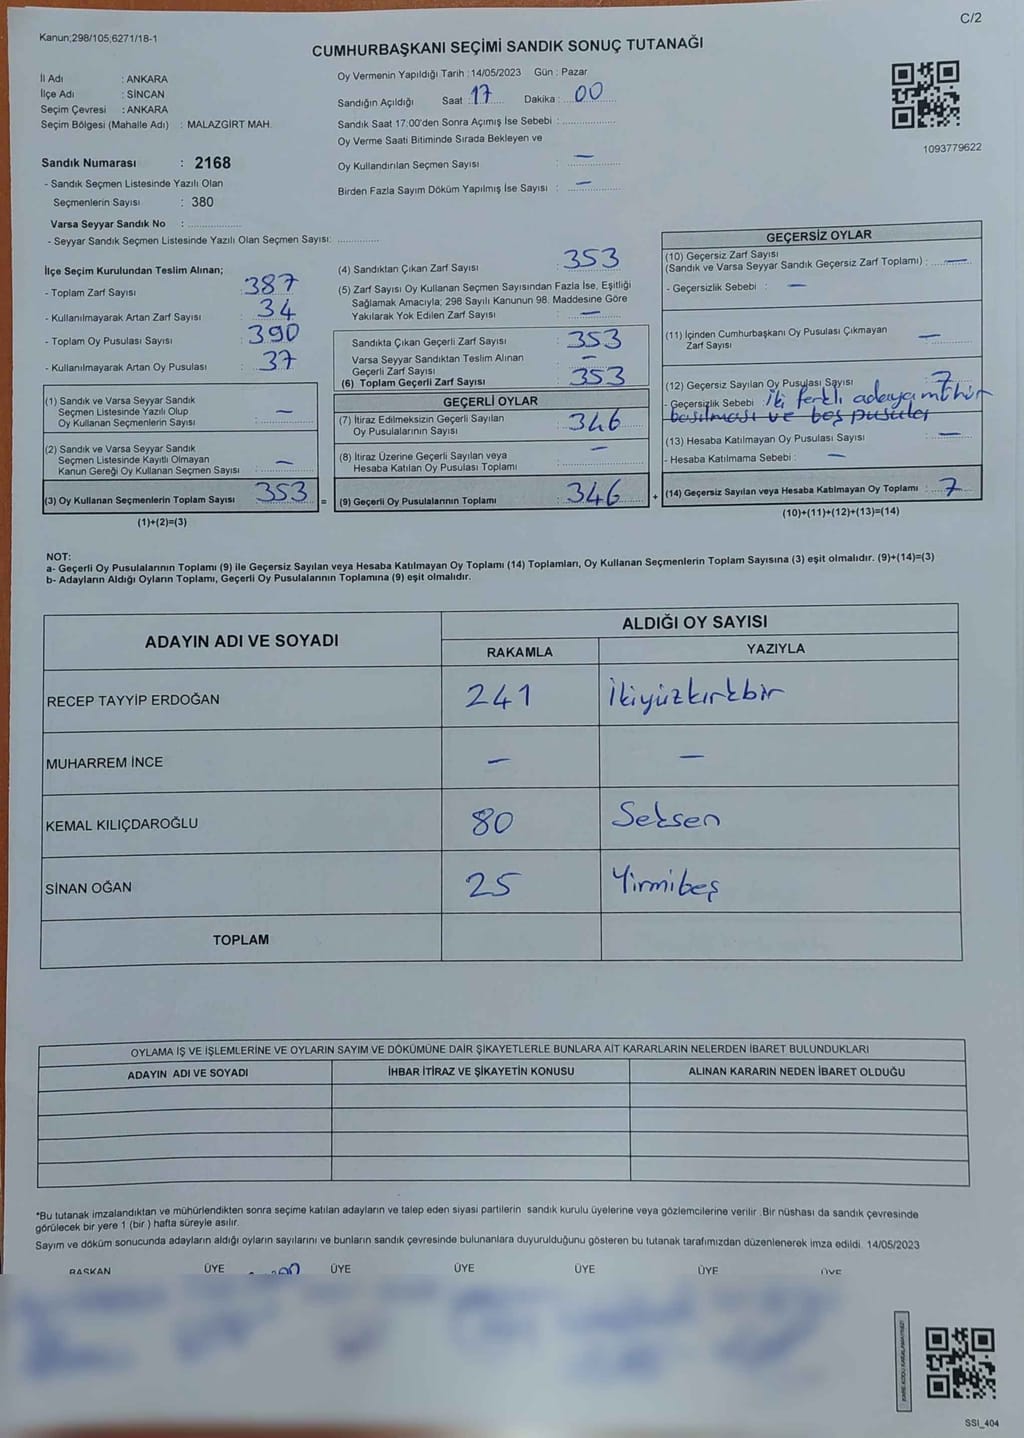 C/2
Kanun;298/105;6271/18-1
CUMHURBAŞKANI SEÇİMİ SANDIK SONUÇ TUTANAĞI
İl Adı : ANKARA
İlçe Adı : SİNCAN
Seçim Çevresi : ANKARA
Seçim Bölgesi (Mahalle Adı) : MALAZGİRT MAH.
Sandık Numarası : 2168
- Sandık Seçmen Listesinde Yazılı Olan
Seçmenlerin Sayısı : 380
Varsa Seyyar Sandık No : ................
- Seyyar Sandık Seçmen Listesinde Yazılı Olan Seçmen Sayısı: .............
Oy Vermenin Yapıldığı Tarih : 14/05/2023 Gün : Pazar
Sandığın Açıldığı Saat : 17 Dakika : 00
Sandık Saat 17:00'den Sonra Açımış İse Sebebi : ................
Oy Verme Saati Bitiminde Sırada Bekleyen ve
Oy Kullandırılan Seçmen Sayısı : —
Birden Fazla Sayım Döküm Yapılmış İse Sayısı : —
1093779622
İlçe Seçim Kurulundan Teslim Alınan;
- Toplam Zarf Sayısı : 387
- Kullanılmayarak Artan Zarf Sayısı : 34
- Toplam Oy Pusulası Sayısı : 390
- Kullanılmayarak Artan Oy Pusulası : 37
(1) Sandık ve Varsa Seyyar Sandık
Seçmen Listesinde Yazılı Olup
Oy Kullanan Seçmenlerin Sayısı : —
(2) Sandık ve Varsa Seyyar Sandık
Seçmen Listesinde Kayıtlı Olmayan
Kanun Gereği Oy Kullanan Seçmen Sayısı : —
(3) Oy Kullanan Seçmenlerin Toplam Sayısı : 353 =
(1)+(2)=(3)
(4) Sandıktan Çıkan Zarf Sayısı : 353
(5) Zarf Sayısı Oy Kullanan Seçmen Sayısından Fazla İse, Eşitliği
Sağlamak Amacıyla; 298 Sayılı Kanunun 98. Maddesine Göre
Yakılarak Yok Edilen Zarf Sayısı : —
Sandıkta Çıkan Geçerli Zarf Sayısı : 353
Varsa Seyyar Sandıktan Teslim Alınan
Geçerli Zarf Sayısı : —
(6) Toplam Geçerli Zarf Sayısı : 353
GEÇERLİ OYLAR
(7) İtiraz Edilmeksizin Geçerli Sayılan
Oy Pusulalarının Sayısı : 346
(8) İtiraz Üzerine Geçerli Sayılan veya
Hesaba Katılan Oy Pusulası Toplamı : —
(9) Geçerli Oy Pusulalarının Toplamı : 346 +
GEÇERSİZ OYLAR
(10) Geçersiz Zarf Sayısı
(Sandık ve Varsa Seyyar Sandık Geçersiz Zarf Toplamı) : —
- Geçersizlik Sebebi : —
(11) İçinden Cumhurbaşkanı Oy Pusulası Çıkmayan
Zarf Sayısı —
(12) Geçersiz Sayılan Oy Pusulası Sayısı : 7
- Geçersizlik Sebebi : İki farklı adaya mühür
basılması ve boş pusula
(13) Hesaba Katılmayan Oy Pusulası Sayısı : —
- Hesaba Katılmama Sebebi : —
(14) Geçersiz Sayılan veya Hesaba Katılmayan Oy Toplamı : 7
(10)+(11)+(12)+(13)=(14)
NOT:
a- Geçerli Oy Pusulalarının Toplamı (9) ile Geçersiz Sayılan veya Hesaba Katılmayan Oy Toplamı (14) Toplamları, Oy Kullanan Seçmenlerin Toplam Sayısına (3) eşit olmalıdır. (9)+(14)=(3)
b- Adayların Aldığı Oyların Toplamı, Geçerli Oy Pusulalarının Toplamına (9) eşit olmalıdır.
ADAYIN ADI VE SOYADI ALDIĞI OY SAYISI
RAKAMLA YAZIYLA
RECEP TAYYİP ERDOĞAN 241 İkiyüzkırkbir
MUHARREM İNCE — —
KEMAL KILIÇDAROĞLU 80 Seksen
SİNAN OĞAN 25 Yirmibeş
TOPLAM
OYLAMA İŞ VE İŞLEMLERİNE VE OYLARIN SAYIM VE DÖKÜMÜNE DAİR ŞİKAYETLERLE BUNLARA AİT KARARLARIN NELERDEN İBARET BULUNDUKLARI
ADAYIN ADI VE SOYADI İHBAR İTİRAZ VE ŞİKAYETİN KONUSU ALINAN KARARIN NEDEN İBARET OLDUĞU
*Bu tutanak imzalandıktan ve mühürlendikten sonra seçime katılan adayların ve talep eden siyasi partilerin sandık kurulu üyelerine veya gözlemcilerine verilir .Bir nüshası da sandık çevresinde
görülecek bir yere 1 (bir ) hafta süreyle asılır.
Sayım ve döküm sonucunda adayların aldığı oyların sayılarını ve bunların sandık çevresinde bulunanlara duyurulduğunu gösteren bu tutanak tarafımızdan düzenlenerek imza edildi. 14/05/2023
BAŞKAN ÜYE ÜYE ÜYE ÜYE ÜYE ÜYE
SSI_404